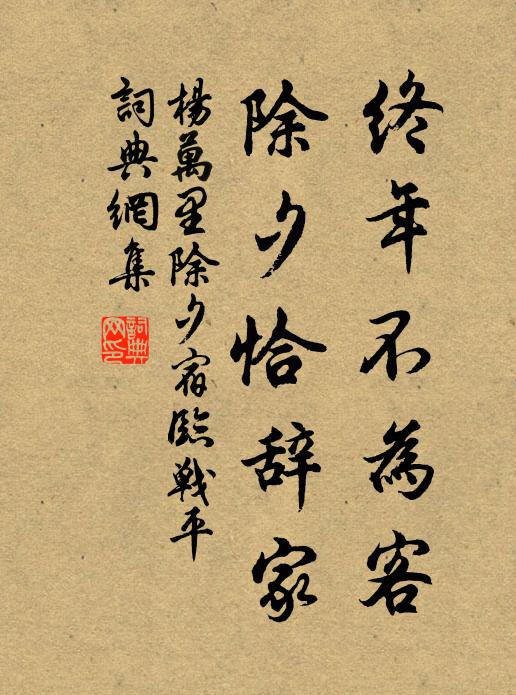 終年不為客
除夕恰辞家
楊萬里除夕宿臨戰平
詞典網集
詞典
网印